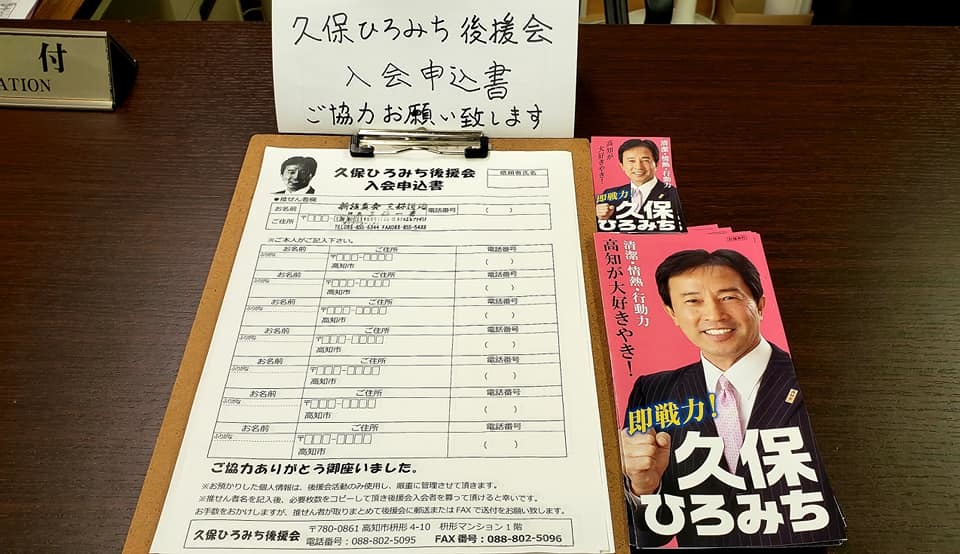 付
ATION
久保ひろみち後援会
入会申込書
ご協力お願い致します
久保ひろみち後援会
入会申込書
依頼者氏名
●推せん者様
お名前
電話番号
( )
ご住所
〒□□□-□□□□
※ご本人がご記入下さい。
お名前 ご住所 電話番号
ふりがな 〒□□□-□□□□ ( )
高知市
お名前 ご住所 電話番号
ふりがな 〒□□□-□□□□ ( )
高知市
お名前 ご住所 電話番号
ふりがな 〒□□□-□□□□ ( )
高知市
お名前 ご住所 電話番号
ふりがな 〒□□□-□□□□ ( )
高知市
お名前 ご住所 電話番号
ふりがな 〒□□□-□□□□ ( )
高知市
お名前 ご住所 電話番号
ふりがな 〒□□□-□□□□ ( )
高知市
ご協力ありがとう御座いました。
※お預かりした個人情報は、後援会活動のみ使用し、厳重に管理させて頂きます。
※推せん者名を記入後、必要枚数をコピーして頂き後援会入会者を募って頂けると幸いです。
お手数をおかけしますが、推せん者が取りまとめて後援会に郵送またはFAXで送付をお願い致します。
久保ひろみち後援会
〒780-0861 高知市枡形 4-10 枡形マンション1階
電話番号：088-802-5095 FAX番号：088-802-5096
清潔・情熱・行動力
高知が大好きやき!
即戦力!
久保
ひろみち
清潔・情熱・行動力
高知が大好きやき!
即戦力!
久保
ひろみち